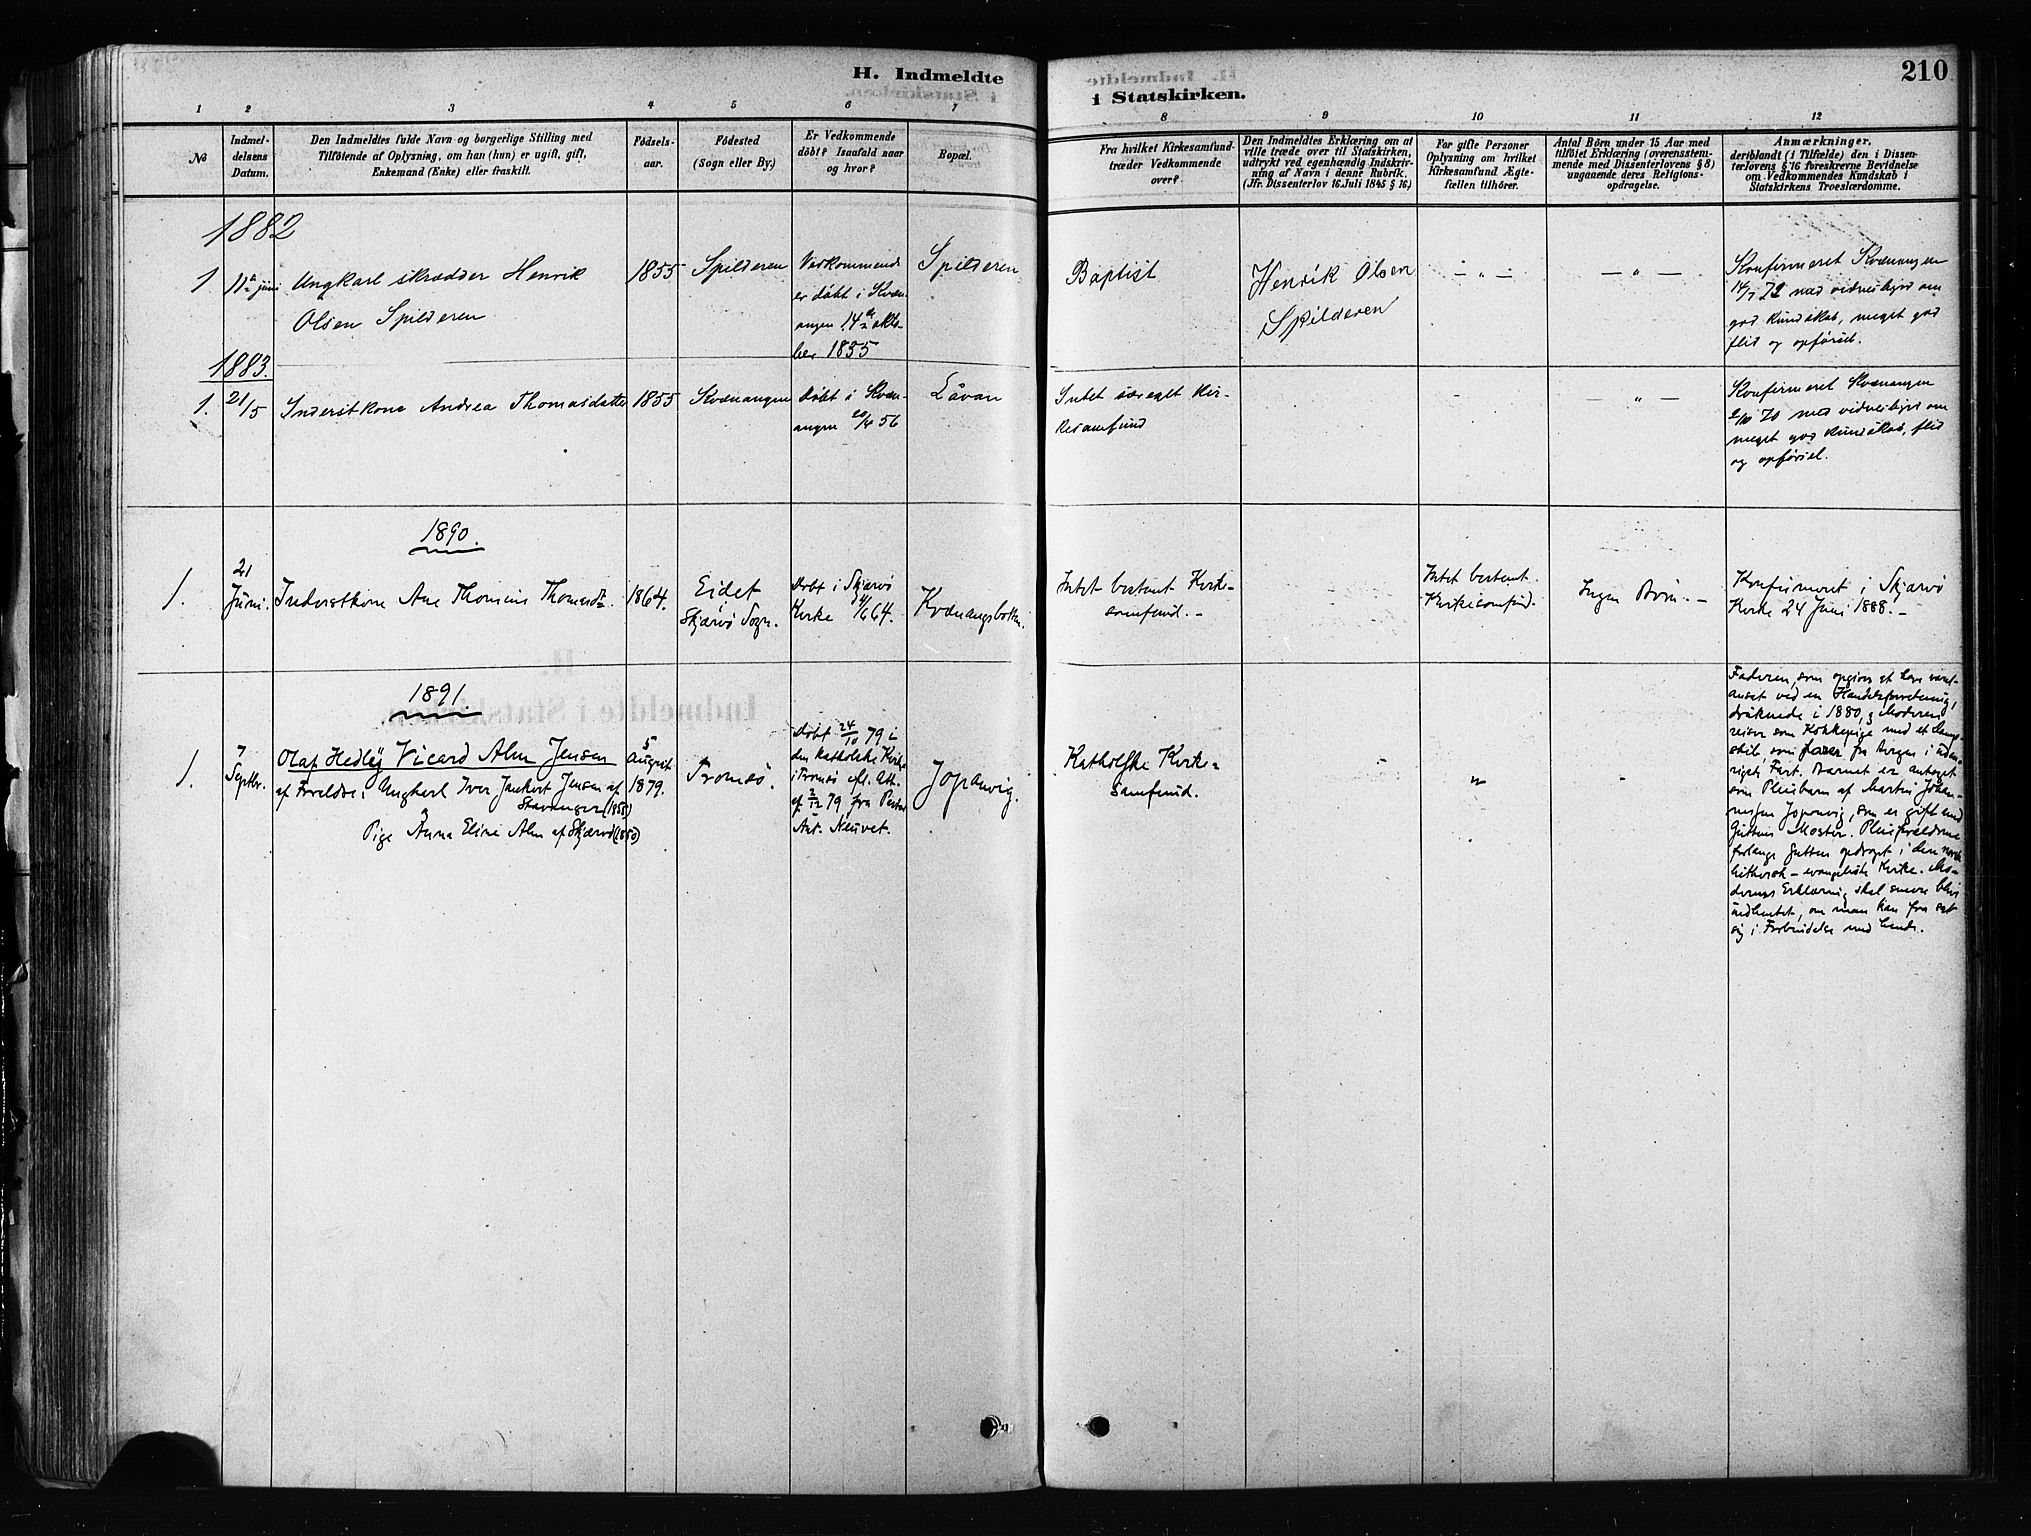 H. Indmeldte
i Statskirken.
210
1 2 3 4 5 6 7 8 9 10 11 12
No
Indmel-
delsens
Datum.
Den Indmeldtes fulde Navn og borgerlige Stilling med
Tilföiende af Oplysning, om han (hun) er ugift, gift,
Enkemand (Enke) eller fraskilt.
Födsels-
aar.
Födested
(Sogn eller By.)
Er Vedkommende
döbt? Isaafald naar
og hvor?
Bopæl.
Fra hvilket Kirkesamfund
træder Vedkommende
over?
Den Indmeldtes Erklæring om at
ville træde over til Statskirken,
udtrykt ved egenhændig Indskriv-
ning af Navn i denne Rubrik.
(Jfr. Dissenterlov 16. Juli 1845 § 16.)
For gifte Personer
Oplysning om hvilket
Kirkesamfund Ægte-
fællen tilhörer.
Antal Börn under 15 Aar med
tilföiet Erklæring (overensstem-
mende med Dissenterlovens § 8)
angaaende deres Religions-
opdragelse.
Anmærkninger,
deriblandt (i Tilfælde) den i Dissen-
terlovens § 16 foreskrevne Bevidnelse
om Vedkommendes Kundskab i
Statskirkens Troeslærdomme.
1882
1
11te juni
Ungkarl skrædder Henrik
Olsen Spilderen
1855
Spilderen
Vedkommende
er døbt i Kvæn-
angen 14de okto-
ber 1855
Spilderen
Baptist
Henrik Olsen
Spilderen
— „ —
— „ —
Konfirmeret Kvænangen
14/7 72 med vidnesbyrd om
god kundskab, meget god
flid og opførsel.
1883.
1.
21/5
Inderstkone Andrea Thomasdatter
1855
Kvænangen
Døbt i Kvæn-
angen 20/4 56
Låvan
Intet særegt Kir-
kesamfund
-
— „ —
Konfirmeret Kvænangen
2/10 70 med vidnesbyrd om
meget god kundskab, flid
og opførsel.
1890.
1.
21
Juni.
Inderstkone Ane Thomine Thomasdtr.
1864.
Eidet
Skjærvö Sogn.
Døbt i Skjærvö
Kirke /6 64.
Kvænangsbotten.
Intet bestemt Kirke-
samfund. -
Intet bestemt
Kirkesamfund.
Ingen Børn. -
Konfirmeret i Skjærvö
Kirke 24 Juni 1888. -
1891
1.
7
Septbr.
Olaf Hedley Vicard Alm Jensen
af Forældre: Ungkarl Iver Jentoft Jensen af
Stavanger (1855)
Pige Anna Elise Alm af Skjærvö (1850)
5
August
1879.
Tromsö.
Døbt 24/10 79 i
den katholske Kirke
i Tromsö efl. Att.
af 2/12 79 fra Pastor
Ant. Neuvet.
Jopanvig.
Katholske Kirke-
samfund.
-
"
-
Faderen, som opgives at have været
ansat ved en Handelsforretning,
druknede i 1880, og Moderen
reiser som Kokkepige med et Damp-
skib, som farer fra Bergen i uden-
rigsk Fart. Barnet er antaget
som Pleiebarn af Martin Johan-
nesen Jopanvig, som er gift med
Guttens Moster. Pleieforældrene
forlange Gutten opdraget i den norsk
luthersk-evangeliske Kirke. Mo-
derens Erklæring skal senere blive
indhentet, om man kan faa sat
sig i Forbindelse med hende.